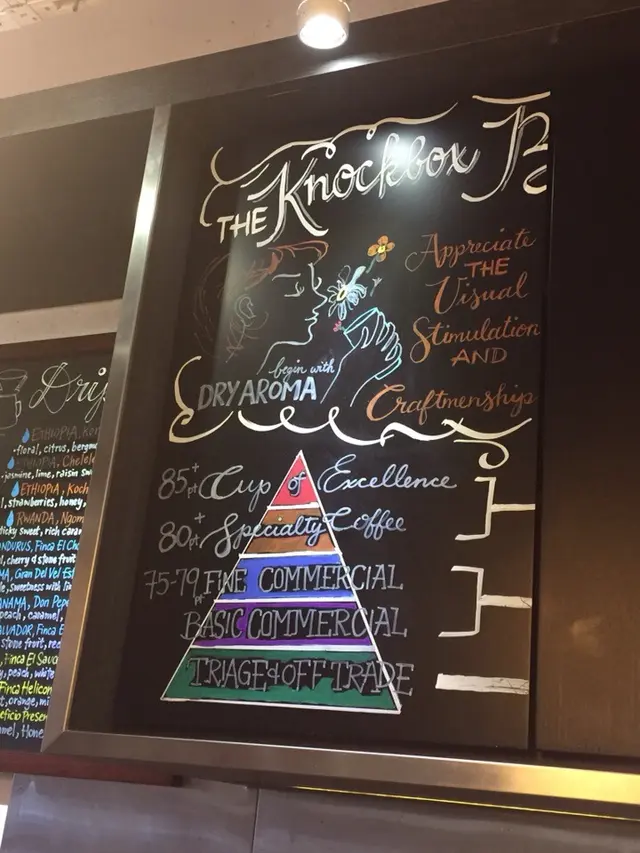 THE Knockbox
Appreciate
THE
Visual
Stimulation
AND
Craftmenship
begin with
DRY AROMA
85+pt Cup of Excellence
80+pt Specialty Coffee
75-79pt FINE COMMERCIAL
BASIC COMMERCIAL
TRIAGE & OFF TRADE
Drip
ETHIOPIA,
floral, citrus,
ETHIOPIA, Chelele
jasmine, lime, raisin
ETHIOPIA, Koch
strawberries, honey
RWANDA,
sticky sweet, rich
Finca El
cherry & stone fruit
Gran Del Val
sweetness with
Don Pep
peach, caramel,
Finca E
stone fruit,
Finca El
peach, white
Finca Helicon
orange,